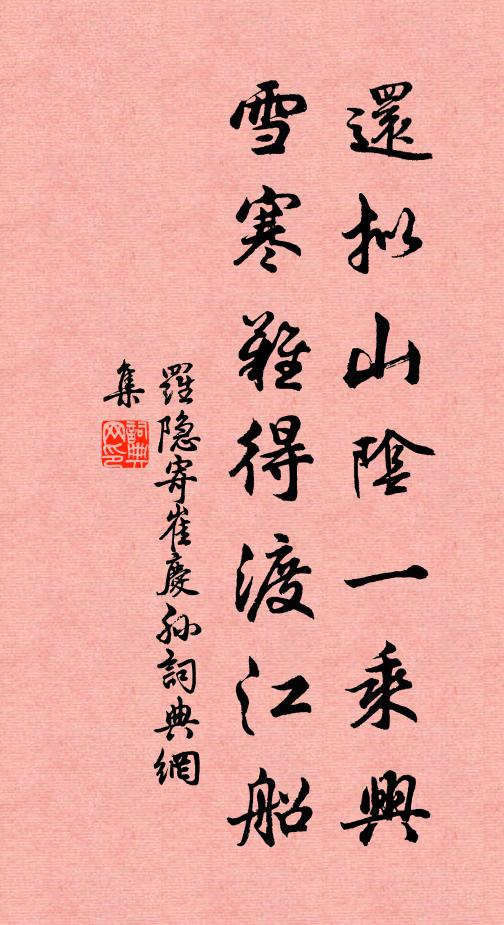 還拟山陰一乘興
雪寒難得渡江船
羅隐寄崔慶孙詞典網
集
詞典
网印